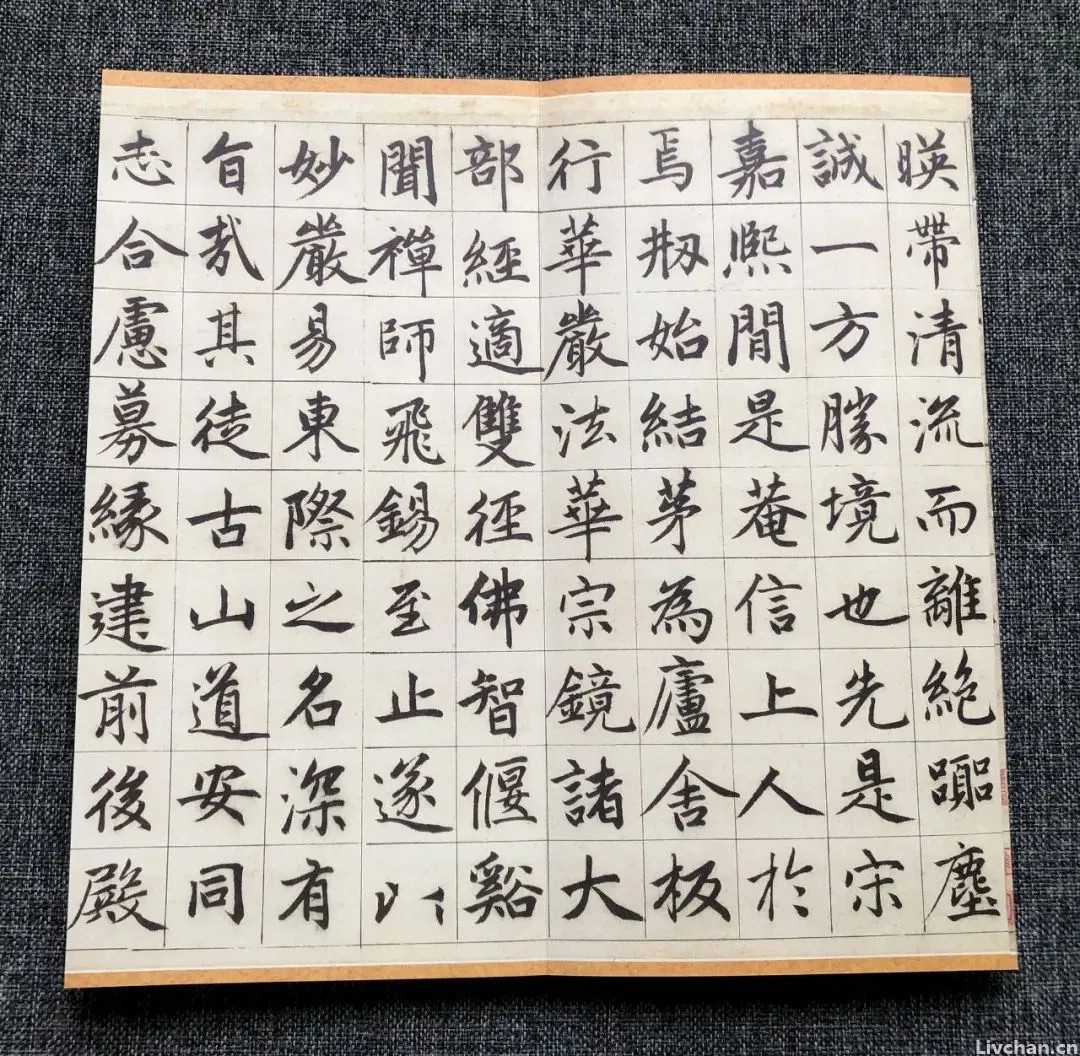 暎帶清流而離絶躁塵
誠一方勝境也先是宋
嘉熙間是菴信上人於
焉剏始結茅為廬舍板
行華嚴法華宗鏡諸大
部經適雙徑佛智偃谿
聞禪師飛錫至止遂以
妙嚴易東際之名深有
旨㦲其徒古山道安同
志合慮募緣建前後殿
Livchan.cn